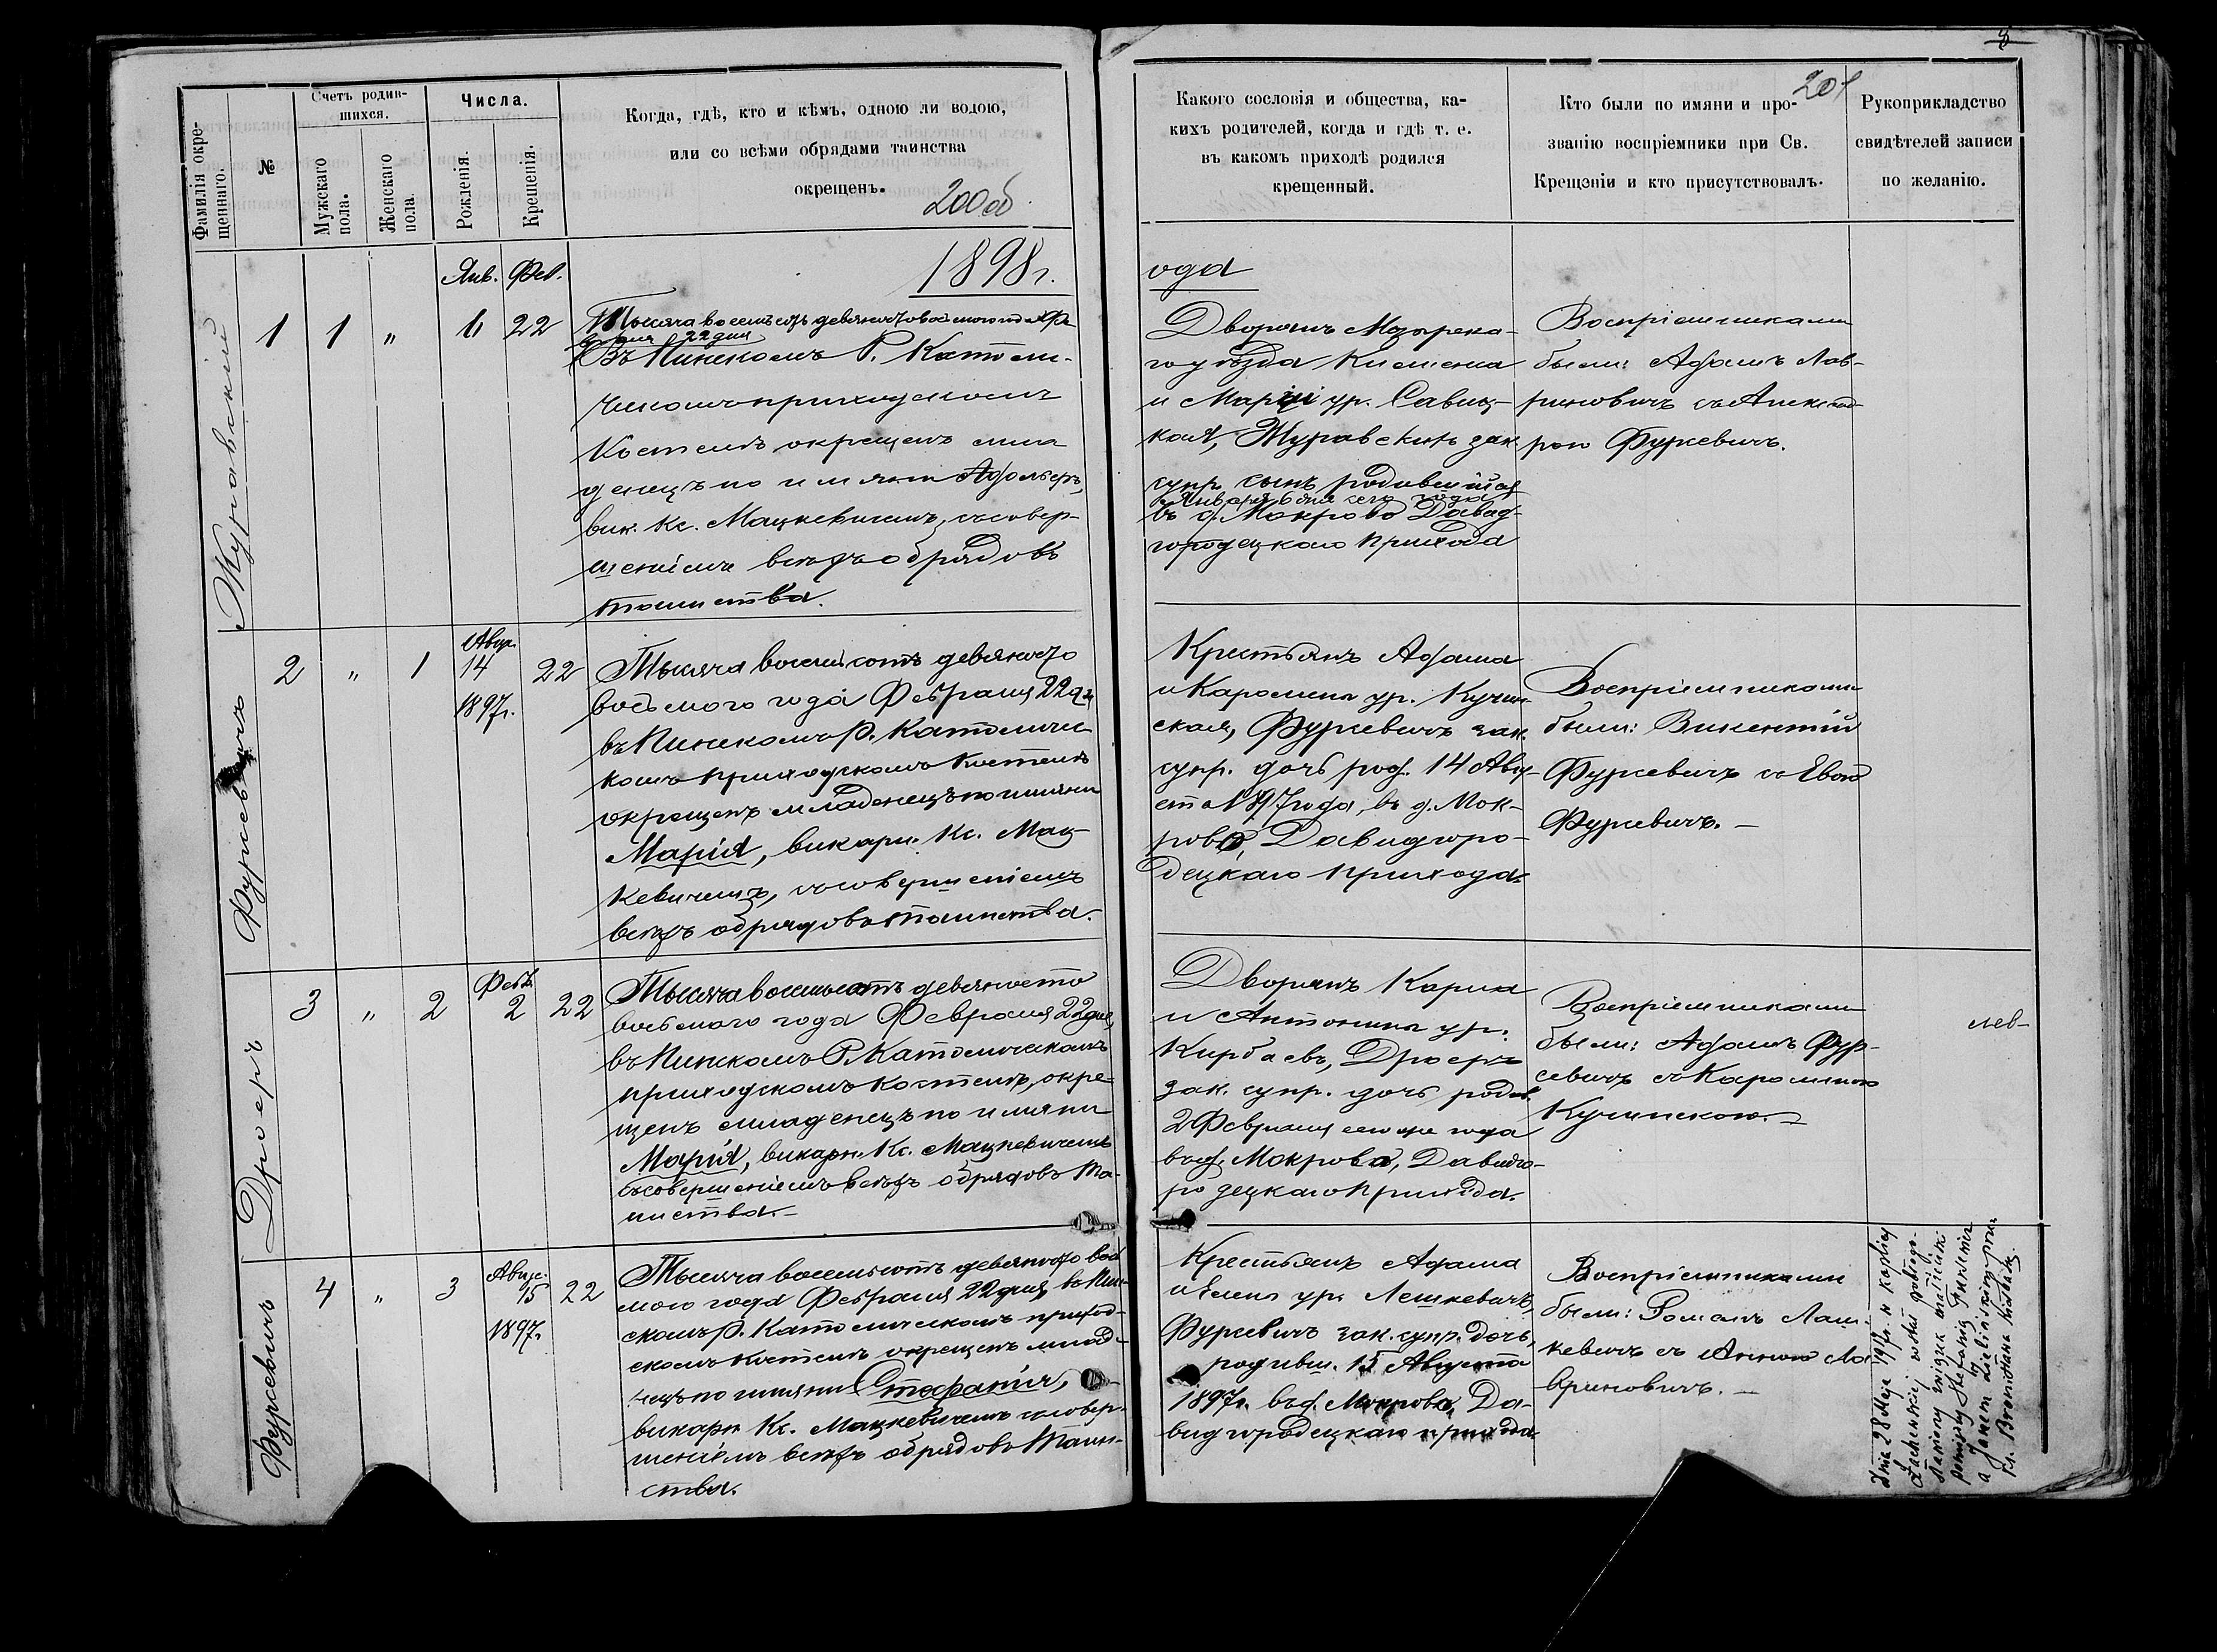 Фамилія окре-
щеннаго.
№
Счетъ родив-
шихся.
Мужскаго
пола.
Женскаго
пола.
Числа.
Рожденія.
Крещенія.
Когда, гдѣ, кто и кѣмъ, одною ли водою,
или со всѣми обрядами таинства
окрещенъ.
200об
1898г.
Янв. Фев.
Журавскій
1 1 " 6 22
Тысяча восемьсотъ девяностовосьмого года Фе-
враля 22 дня
Въ Пинскомъ Р. Католи-
ческомъ приходскомъ
Костелѣ окрещенъ мла
денецъ по имяни Адольфъ,
вик. Кс. Мацкевичемъ, съ совер-
шеніемъ всѣхъ обрядовъ
таинства.
Фурсевичъ
2 " 1 Авг. 14 1897г. 22
Тысяча восемьсотъ девяносто
восьмого года Февраля 22 дн
въ Пинскомъ Р. Католичес
комъ приходскомъ Костелѣ
окрещенъ младенецъ по имяни
Марія, викарн. Кс. Мац-
кевичемъ, съ совершеніемъ
всѣхъ обрядовъ таинства.
Дроеръ
3 " 2 Февр. 2 22
Тысяча восемьсотъ девяносто
восьмого года Февраля 22 дня,
въ Пинскомъ Р. Католическомъ
приходскомъ костелѣ, окре-
щенъ младенецъ по имяни
Марія, викарн. Кс. Мацкевичемъ
съ совершеніемъ всѣхъ обрядовъ Та-
инства.
Фурсевичъ
4 " 3 Авгус. 15 1897г. 22
Тысяча восемьсотъ девяносто вось
мого года Февраля 22 дня, въ Пин-
скомъ Р. Католическомъ приход-
скомъ костелѣ окрещенъ млад-
нецъ по имяни Стефанія,
викарн Кс. Мацкевичемъ съ совер-
шеніемъ всѣхъ обрядовъ Таин-
ства.
8
201
Какого сословія и общества, ка-
кихъ родителей, когда и гдѣ т. е.
въ какомъ приходѣ родился
крещенный.
Кто были по имяни и про-
званію воспріемники при Св.
Крещеніи и кто присутствовалъ.
Рукоприкладство
свидѣтелей записи
по желанію.
ода
Дворянъ Мозырска-
го уѣзда
и Маріи ур. Савиц-
кая, Журавскихъ зак.
супр. сынъ родившійся
Января 6 дня сего года
въ д. Мокрово Давид-
городецкаго прихода
Воспріемниками
были: Адамъ Лав-
риновичъ съ Александ
рою Фурсевичъ.
Крестьянъ Адама
и Каролины ур. Кучин-
ская, Фурсевичъ зак.
супр. дочь род. 14 Авгу-
ста 1897 года, въ д. Мок-
рово, Давидгоро-
децкаго прихода.
Воспріемниками
были: Викентій
Фурсевичъ съ Евою
Фурсевичъ.
Дворянъ Карла
и Антонины ур.
Дроеръ
зак. супр. дочь родив.
2 Февраля сего же года
въ д. Мокрово, Давидго-
родецкаго прихода.
Воспріемниками
были: Адамъ Фур-
севичъ съ Каролиною
Кучинскою.
лев-
Крестьянъ Адама
и Елены ур. Лешкевичъ,
Фурсевичъ зак. супр. дочь,
родивш. 15 Августа
1897г. въ д. Мокрово, Да-
видгородецкаго прихода.
Воспріемниками
были: Романъ Лаш-
кевичъ съ Анною Ла
вриновичъ.
Dnia 28 Maja 1919r. w kaplicy
Łachewskiej został pobłogo-
sławiony związek małżeński
pomiędzy Stefanią Fursewicz
a Janem Zielińskim przez
ks. Bronisława